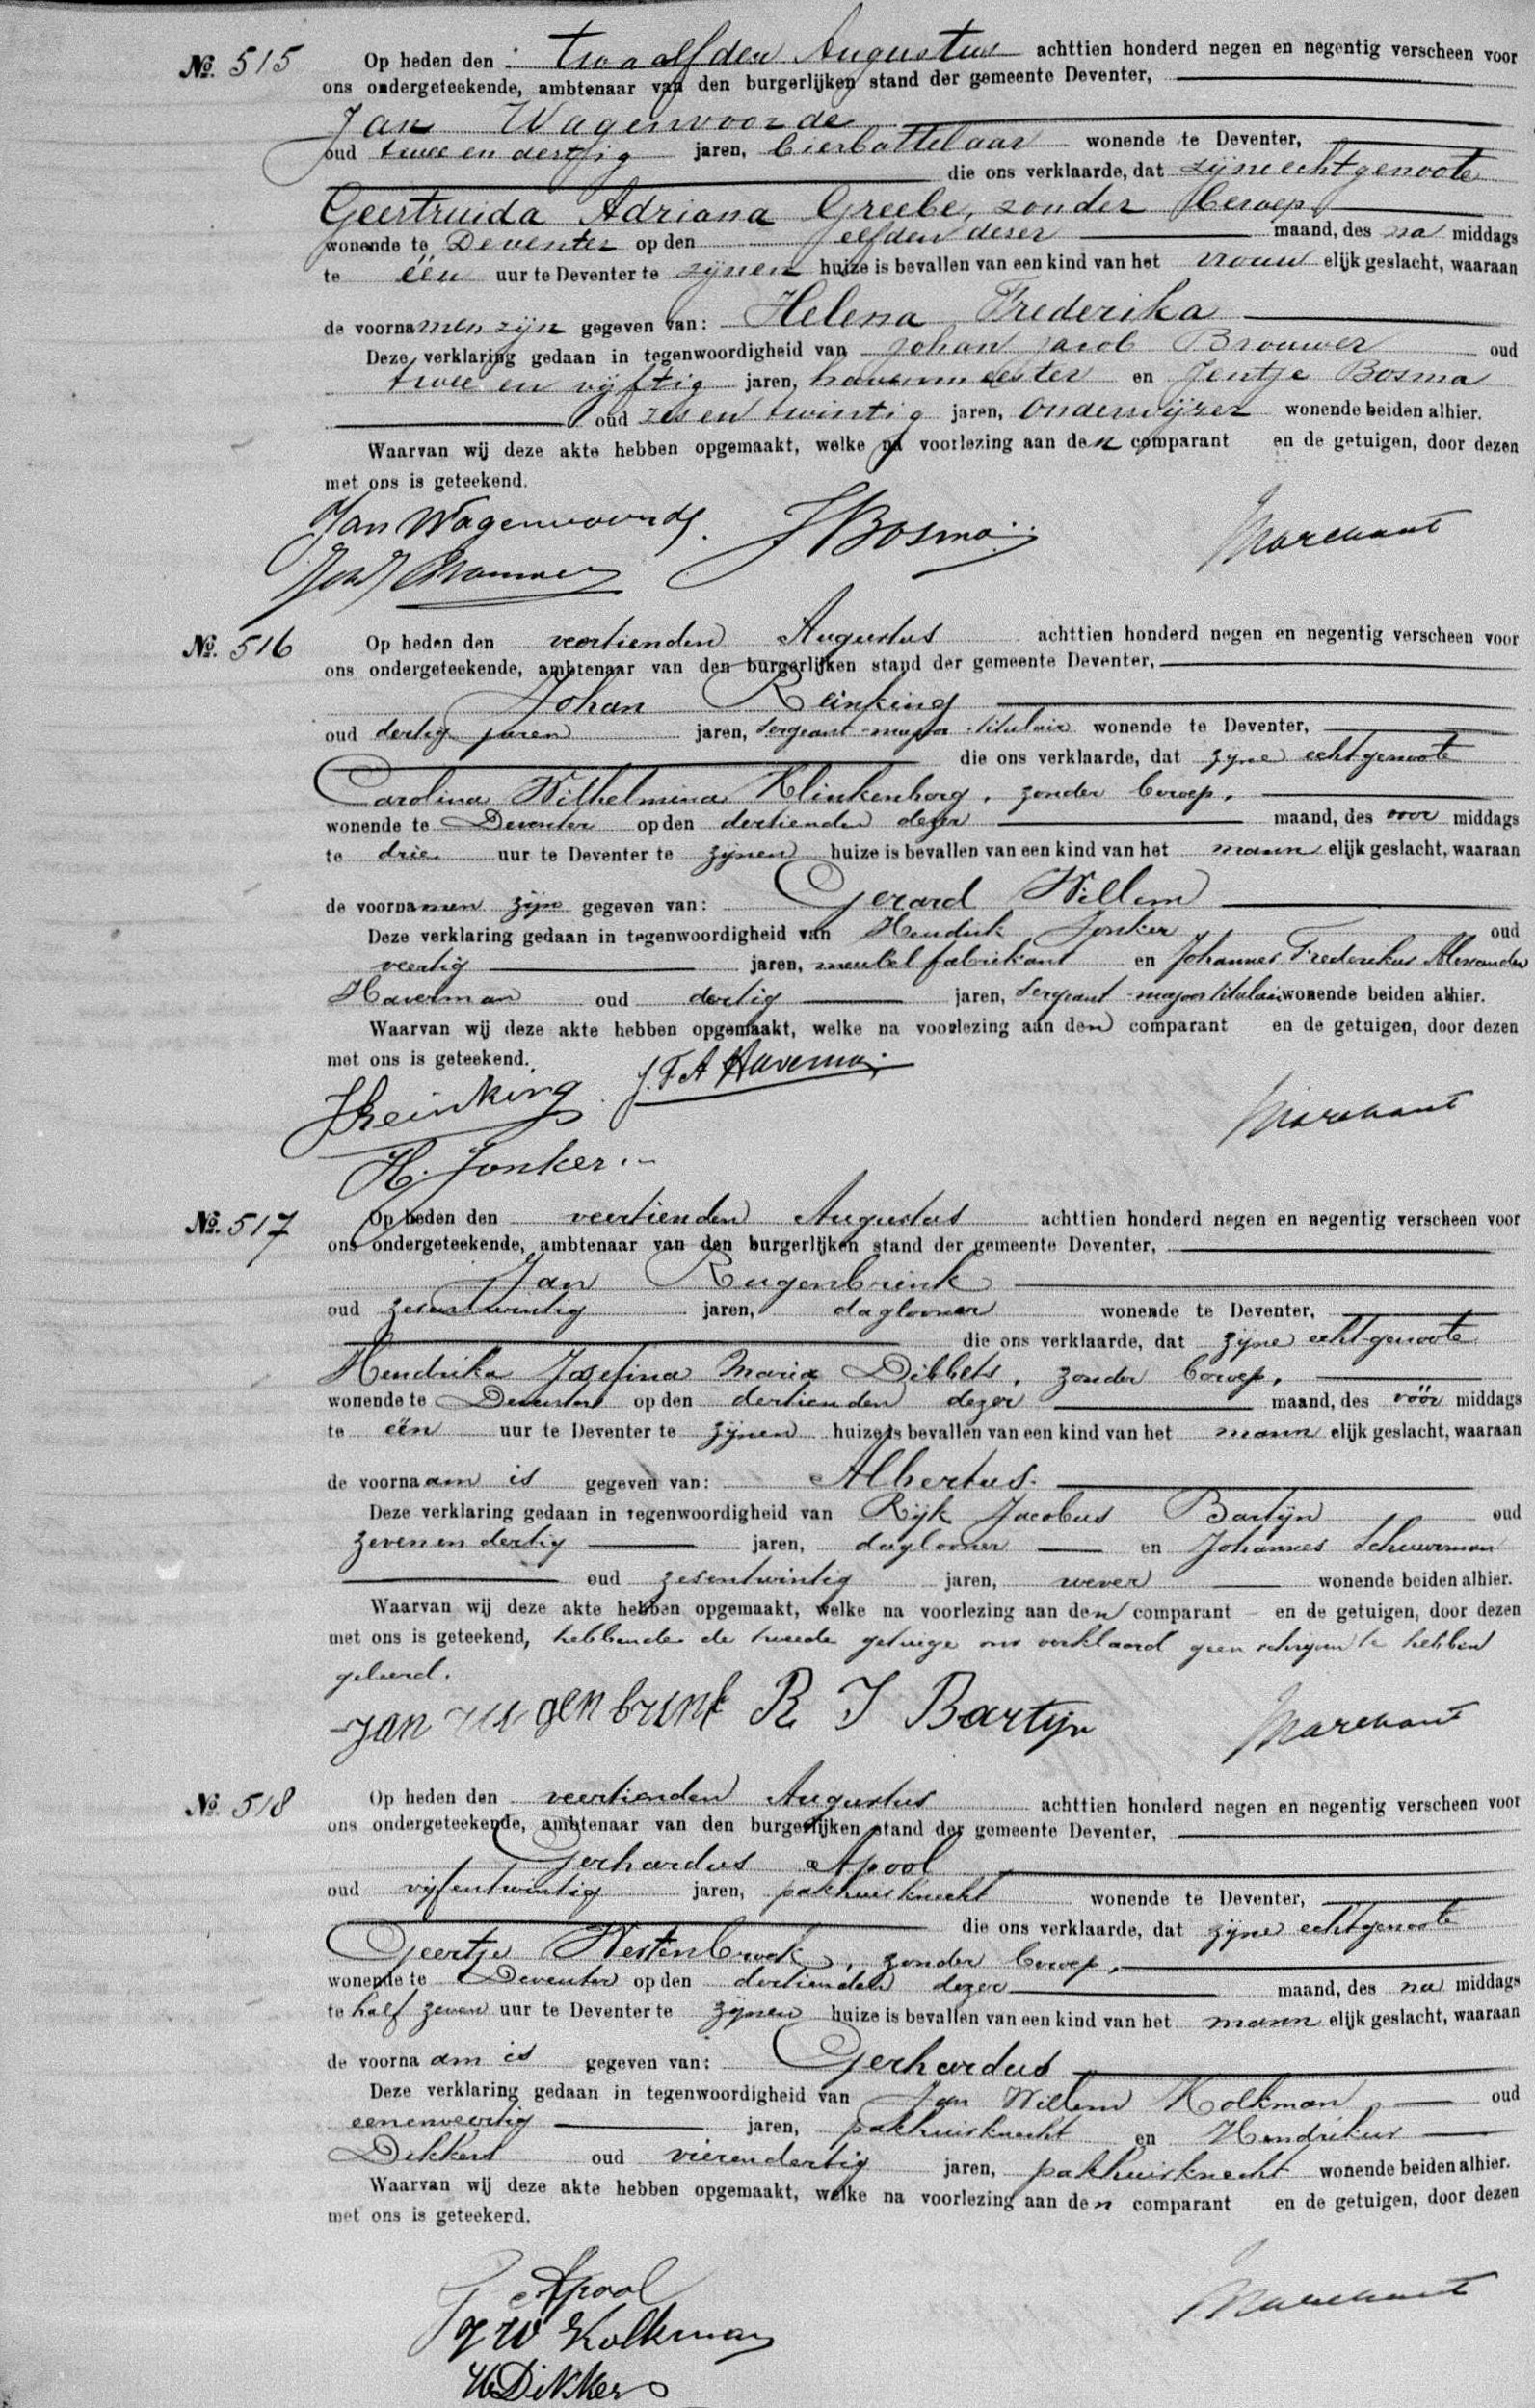 No. 515 Op heden den twaalfden Augustus achttien honderd negen en negentig verscheen voor
ons ondergeteekende, ambtenaar van den burgerlijken stand der gemeente Deventer,
Jan Wagenvoorde
oud twee en dertig jaren, bierbottelaar wonende te Deventer,
die ons verklaarde, dat zijne echtgenoote
Geertruida Adriana Greebe, zonder beroep
wonende te Deventer op den elfden dezer maand, des na middags
te één uur te Deventer te zijnen huize is bevallen van een kind van het vrouw elijk geslacht, waaraan
de voornamen zijn gegeven van: Helena Frederika
Deze verklaring gedaan in tegenwoordigheid van Johan Jacob Brouwer oud
twee en vijftig jaren, havenmeester en Jentje Bosma
oud zes en twintig jaren, Onderwijzer wonende beiden alhier.
Waarvan wij deze akte hebben opgemaakt, welke na voorlezing aan den comparant en de getuigen, door dezen
met ons is geteekend.
Jan Wagenvoorde. JBosma Marchant
Brouwer
No. 516 Op heden den veertienden Augustus achttien honderd negen en negentig verscheen voor
ons ondergeteekende, ambtenaar van den burgerlijken stand der gemeente Deventer,
Johan Reinking
oud dertig jaren jaren, sergeant-majoor-titulair wonende te Deventer,
die ons verklaarde, dat zijne echtgenoote
Carolina Wilhelmina Klinkenberg, zonder beroep,
wonende te Deventer op den dertienden dezer maand, des voor middags
te drie uur te Deventer te zijnen huize is bevallen van een kind van het mann elijk geslacht, waaraan
de voornamen zijn gegeven van: Gerard Willem
Deze verklaring gedaan in tegenwoordigheid van Hendrik Jonker oud
veertig jaren, meubelfabriekant en Johannes Frederikus Alexander
Haverman oud dertig jaren, sergeant-majoor titulair wonende beiden alhier.
Waarvan wij deze akte hebben opgemaakt, welke na voorlezing aan den comparant en de getuigen, door dezen
met ons is geteekend.
JReinking J.F.A Haverman Marchant
H. Jonker
No. 517 Op heden den veertienden Augustus achttien honderd negen en negentig verscheen voor
ons ondergeteekende, ambtenaar van den burgerlijken stand der gemeente Deventer,
Jan Rugenbrink
oud zesentwintig jaren, daglooner wonende te Deventer,
die ons verklaarde, dat zijne echtgenoote
Hendrika Josefina Maria Dibbets, zonder beroep,
wonende te Deventer op den dertienden dezer maand, des vóór middags
te één uur te Deventer te zijnen huize is bevallen van een kind van het mann elijk geslacht, waaraan
de voornaam is gegeven van: Albertus.
Deze verklaring gedaan in tegenwoordigheid van Rijk Jacobus Bartijn oud
zevenendertig jaren, daglooner en Johannes Schuurman
oud zesentwintig jaren, wever wonende beiden alhier.
Waarvan wij deze akte hebben opgemaakt, welke na voorlezing aan den comparant en de getuigen, door dezen
met ons is geteekend, hebbende de tweede getuige ons verklaard geen schrijven te hebben
geleerd.
Jan Rugenbrink R J Bartijn Marchant
No. 518 Op heden den veertienden Augustus achttien honderd negen en negentig verscheen voor
ons ondergeteekende, ambtenaar van den burgerlijken stand der gemeente Deventer,
Gerhardus Apool
oud vijfentwintig jaren, pakhuisknecht wonende te Deventer,
die ons verklaarde, dat zijne echtgenoote
Geertje Westenbroek, zonder beroep,
wonende te Deventer op den dertienden dezer maand, des na middags
te half zeven uur te Deventer te zijnen huize is bevallen van een kind van het mann elijk geslacht, waaraan
de voornaam is gegeven van: Gerhardus
Deze verklaring gedaan in tegenwoordigheid van Jan Willem Kolkman oud
eenenveertig jaren, pakhuisknecht en Hendrikus
Dikkers oud vierendertig jaren, pakhuisknecht wonende beiden alhier.
Waarvan wij deze akte hebben opgemaakt, welke na voorlezing aan den comparant en de getuigen, door dezen
met ons is geteekend.
G Apool Marchant
J W Kolkman
H Dikkers